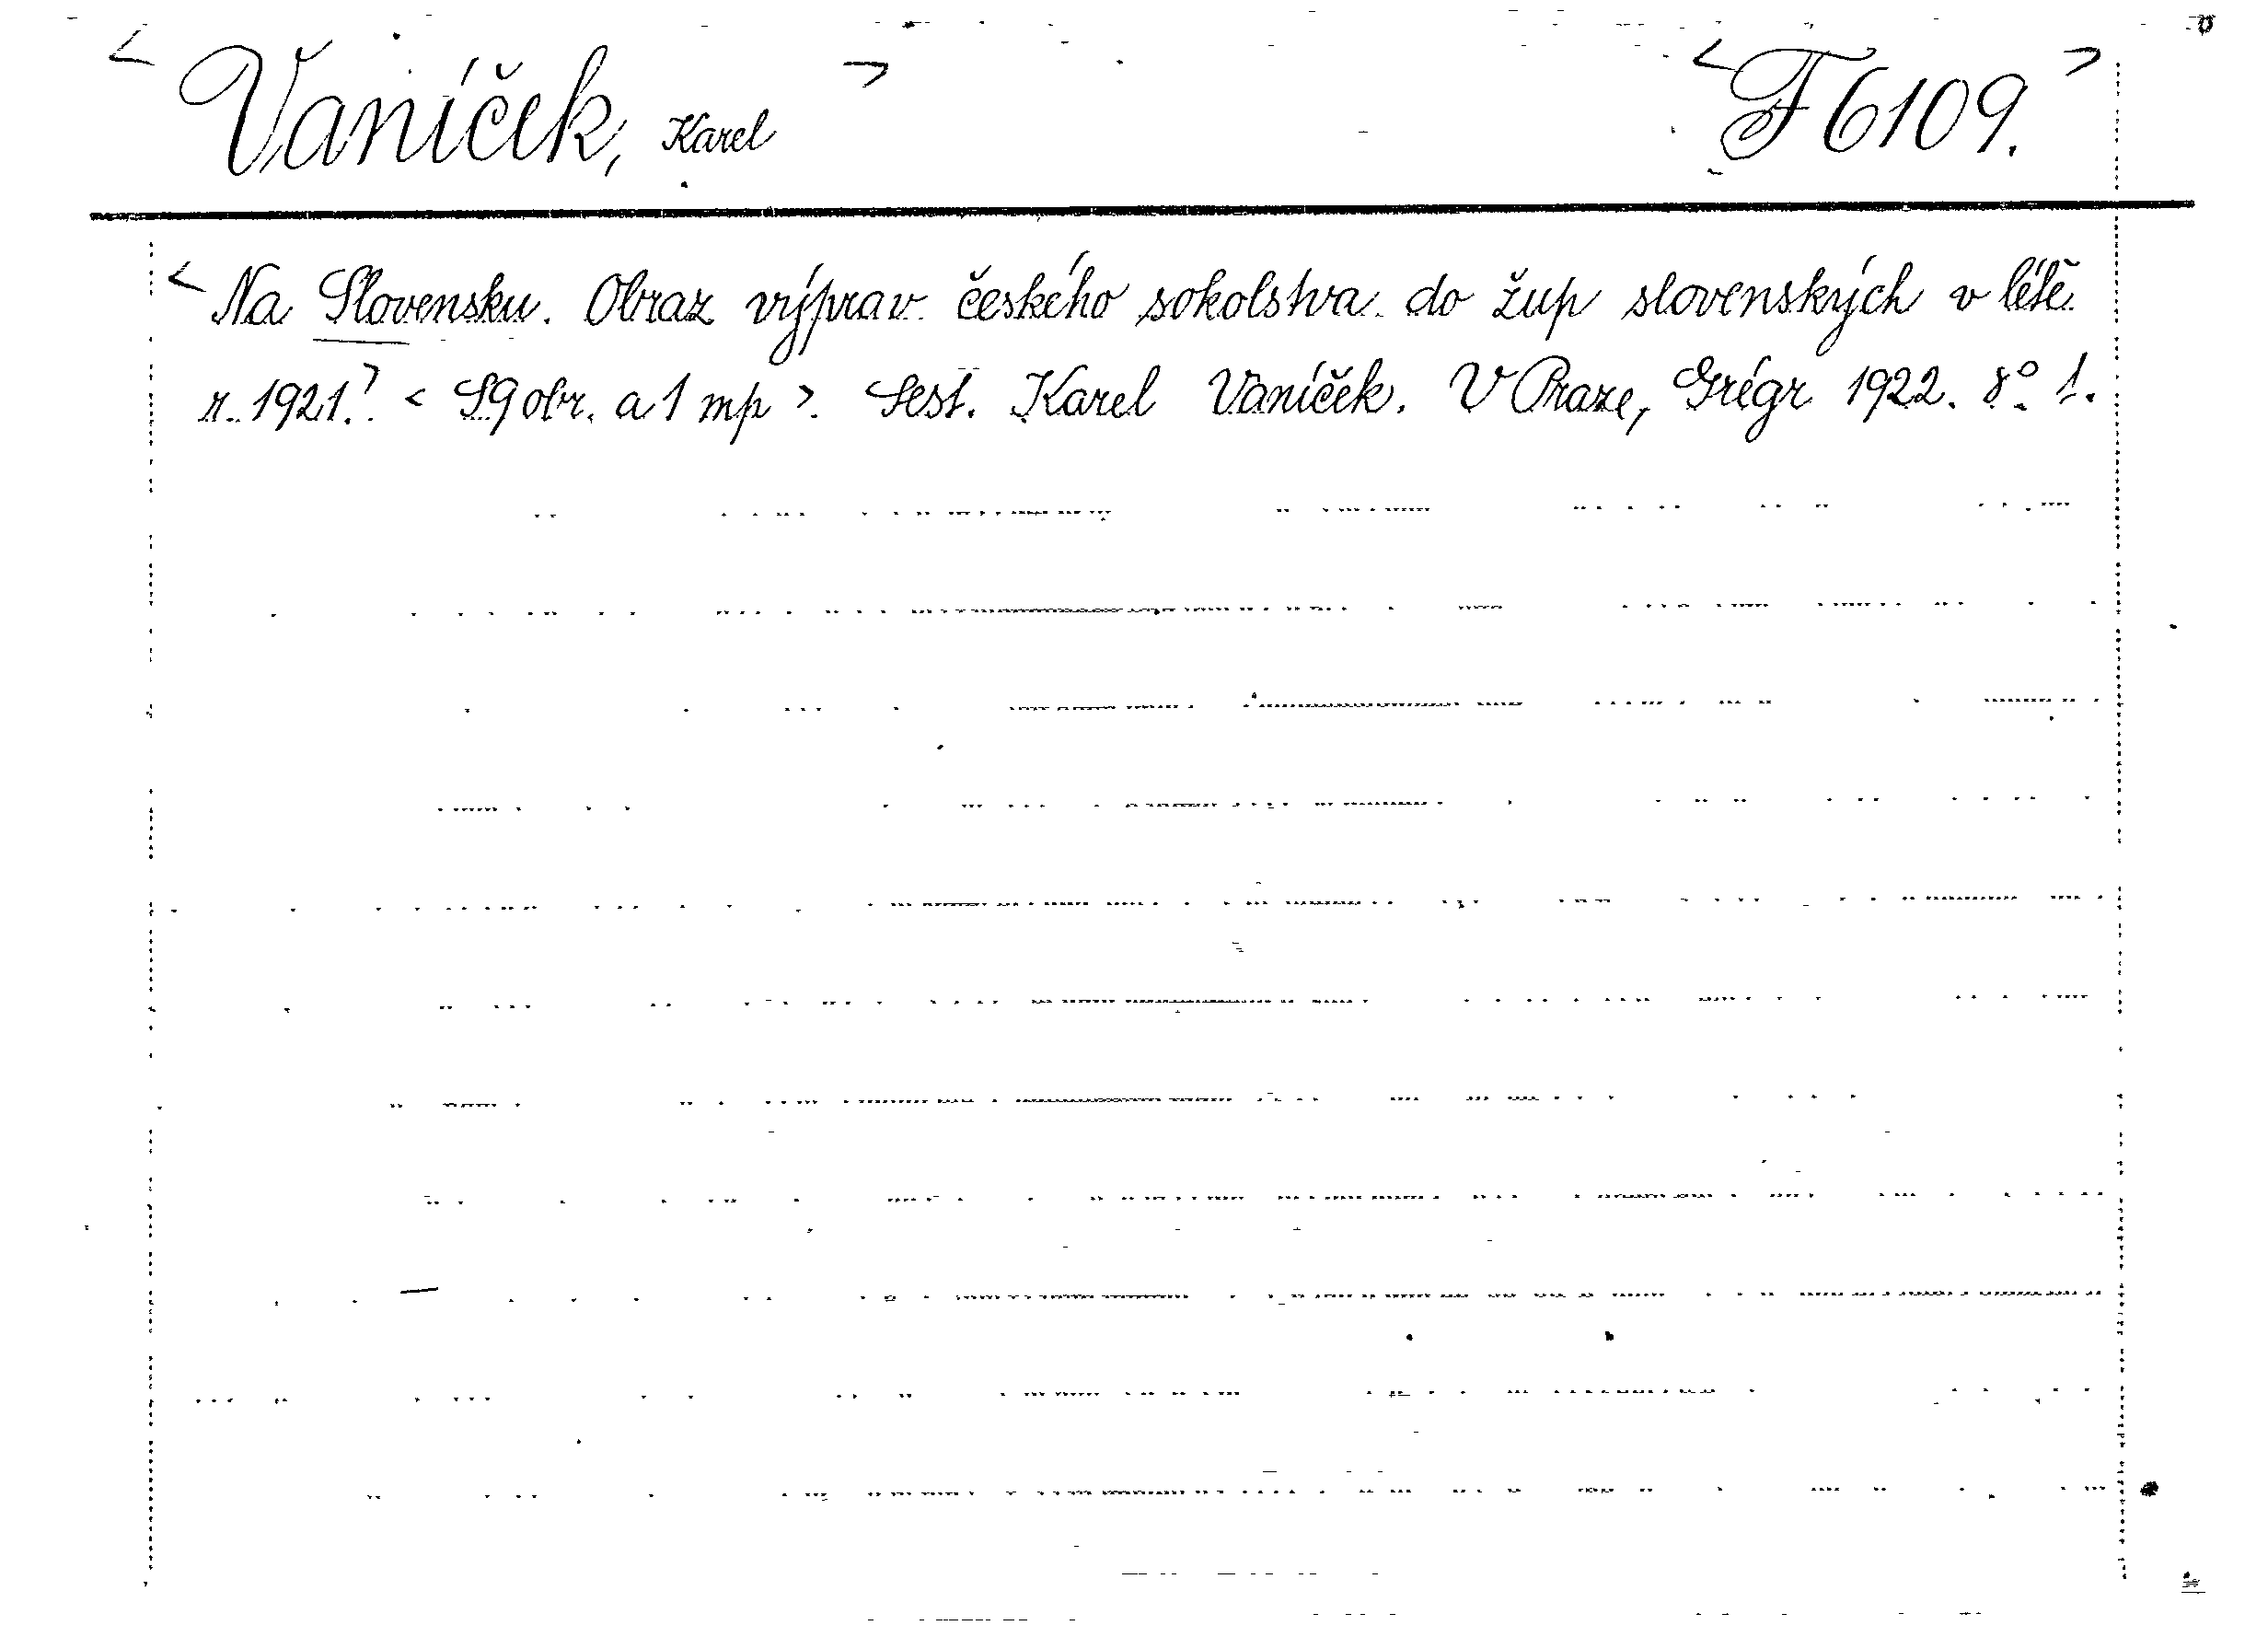 < Vaníček, Karel > < F 6109. >
< Na Slovensku. Obraz výprav českého sokolstva do žup slovenských v létě
r. 1921. > < S 9 obr. a 1 mp >. Sest. Karel Vaníček. V Praze, Grégr 1922. 8° 1.